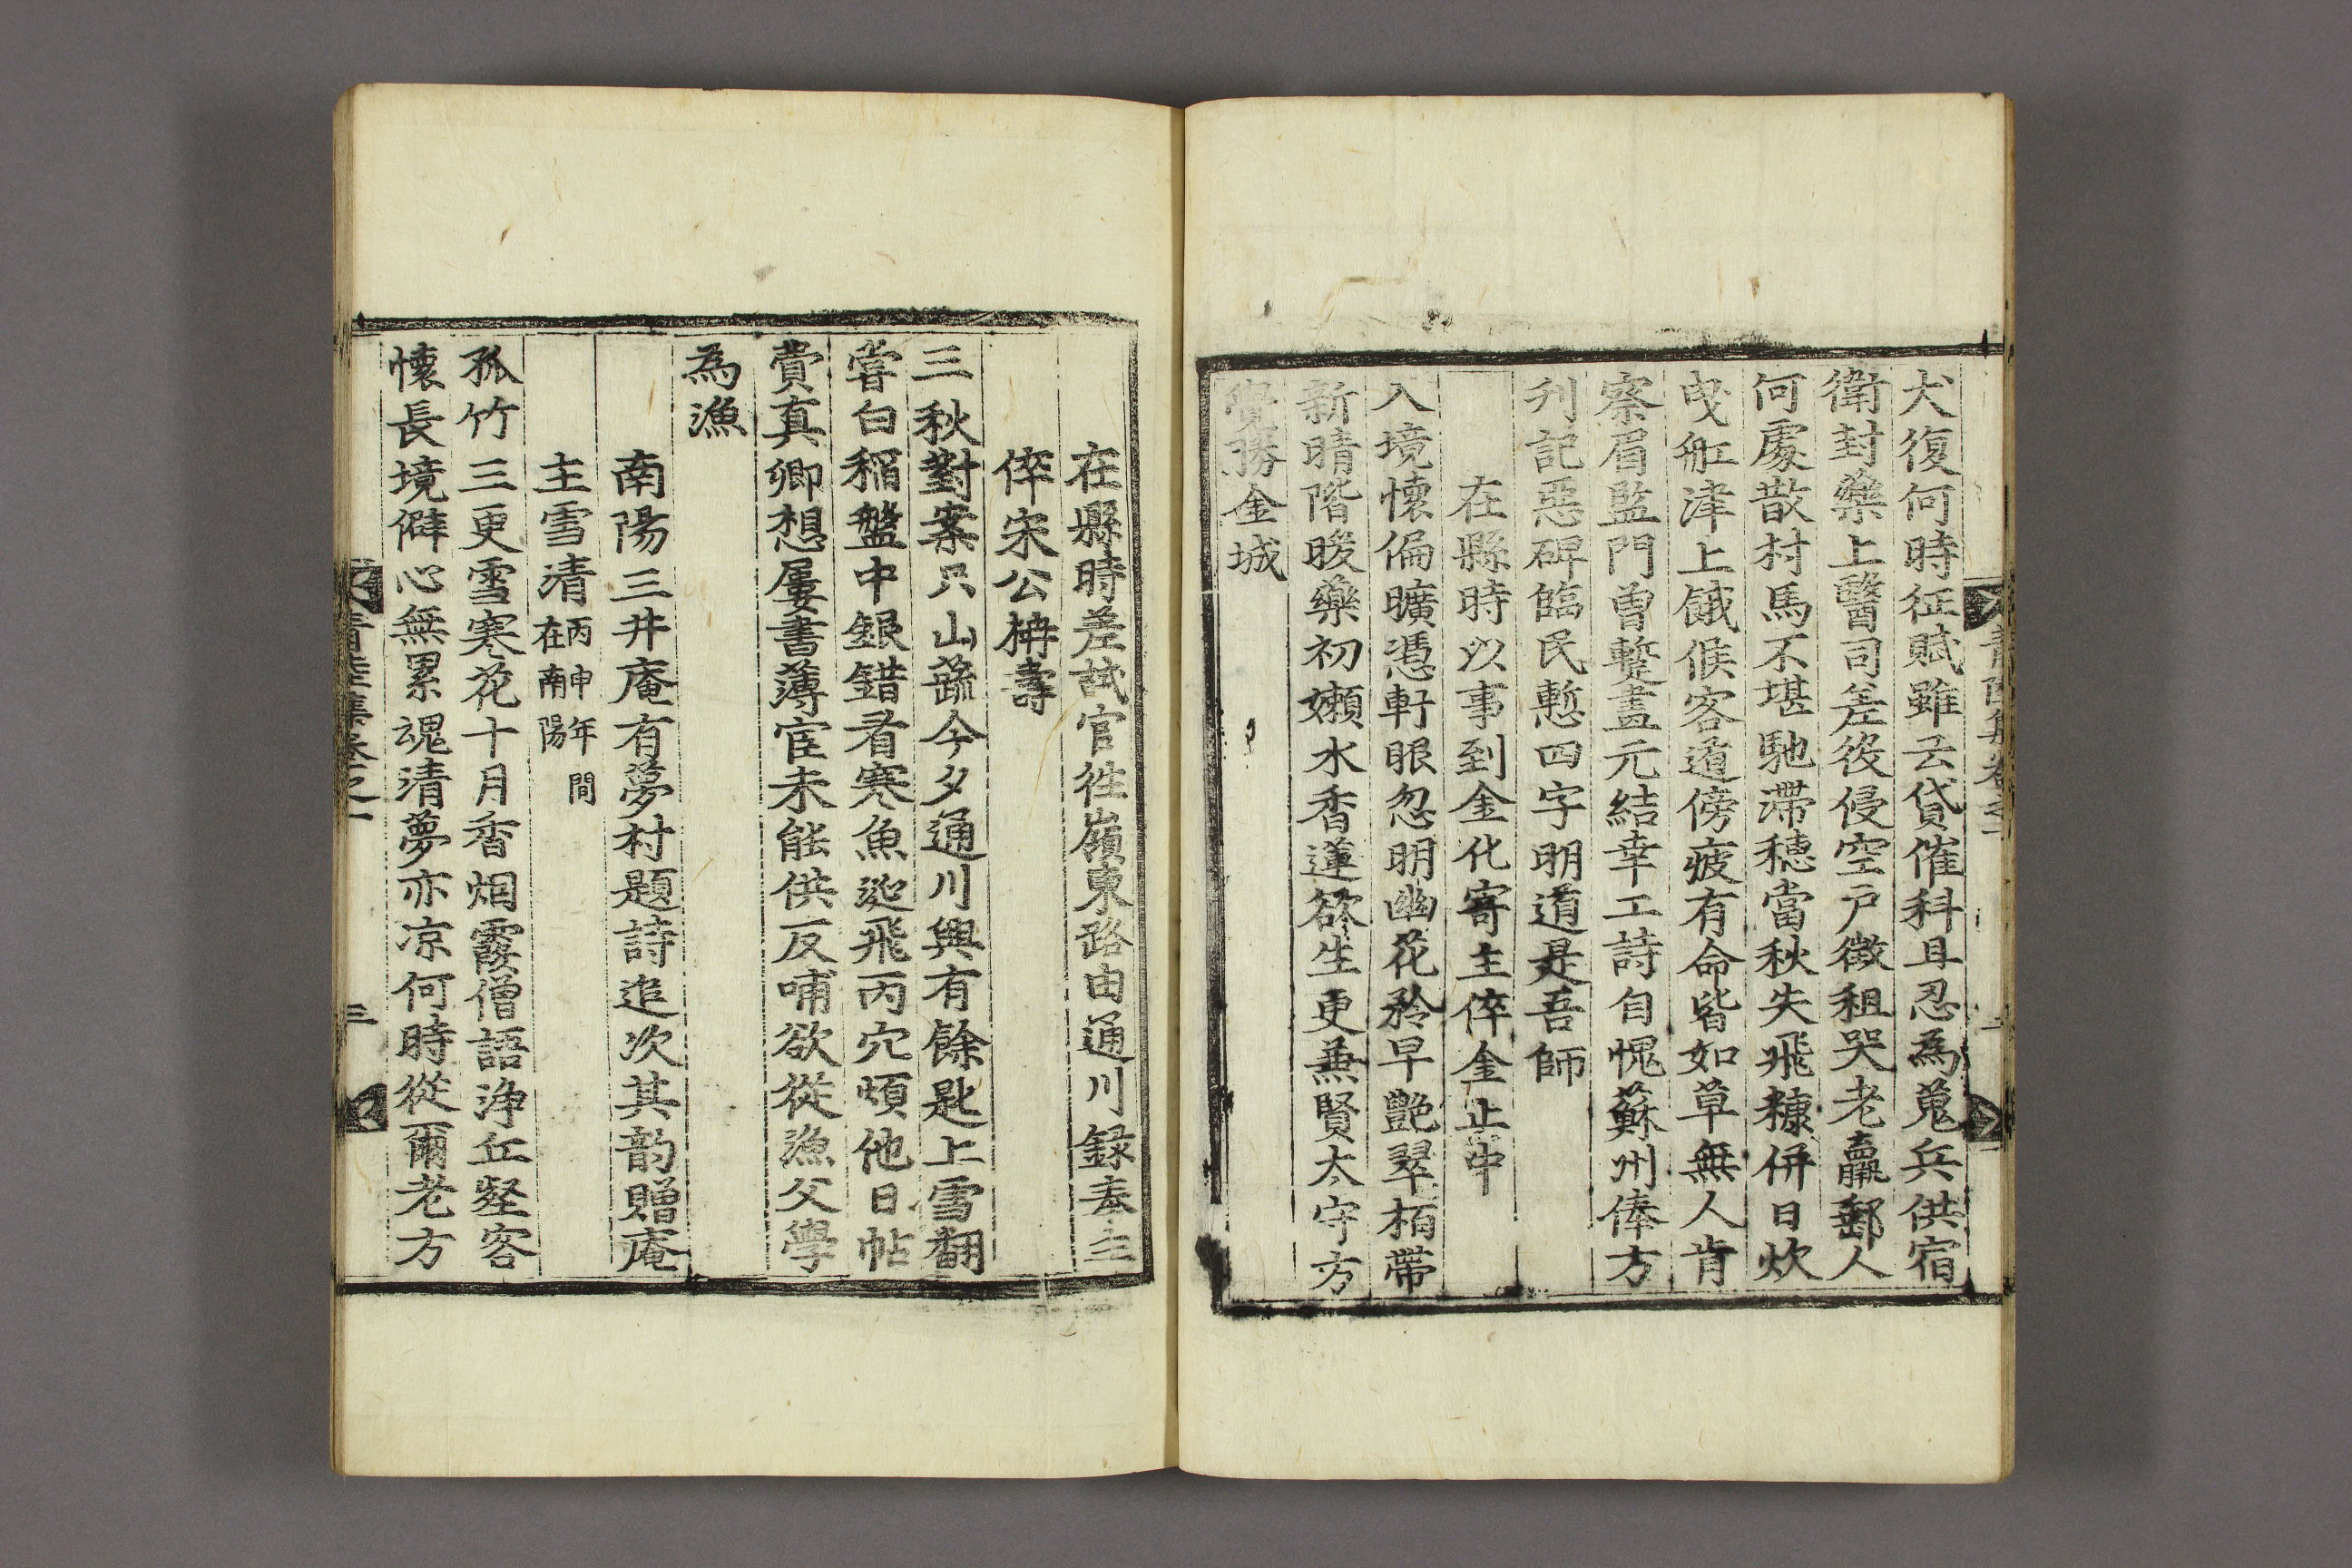 犬復何時征賦雖云貸催科且忍為蒐兵供宿
衛封藥上醫司差役侵空戶徵租哭老羸郵人
何處散村馬不堪馳滯穗當秋失飛糠併日炊
曳舡津上餓候客道傍疲有命皆如草無人肯
察眉監門曾蹔畫元結幸工詩自愧蘇州俸方
刋記惡碑臨民慙四字明道是吾師
在縣時以事到金化寄主倅金止中
入境懷偏曠憑軒眼忽明幽花矜早艶翠栢帶
新晴階暖藥初嫩水香蓮欲生更兼賢太守方
覺勝金城
在縣時差試官徃嶺東路由通川録奉主
倅宋公柟壽
三秋對案只山蔬今夕通川興有餘匙上雪翻
甞白稲盤中銀錯看寒魚迯飛丙穴煩他日帖
賣真卿想屢書薄宦未能供反哺欲從漁父學
為漁
南陽三井庵有夢村題詩追次其韵贈庵
主雪清丙申年間在南陽
孤竹三更雪寒花十月香烟霞僧語浄丘壑客
懷長境僻心無累魂清夢亦凉何時從爾老方
青陸集卷之一
三